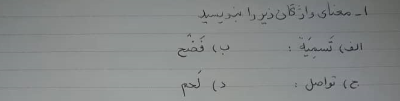 ۱- معنای واژگان زیر را بنویسید
الف) تَسمِیَة : ب) فَضَح
ج) تواصل : د) لَحم